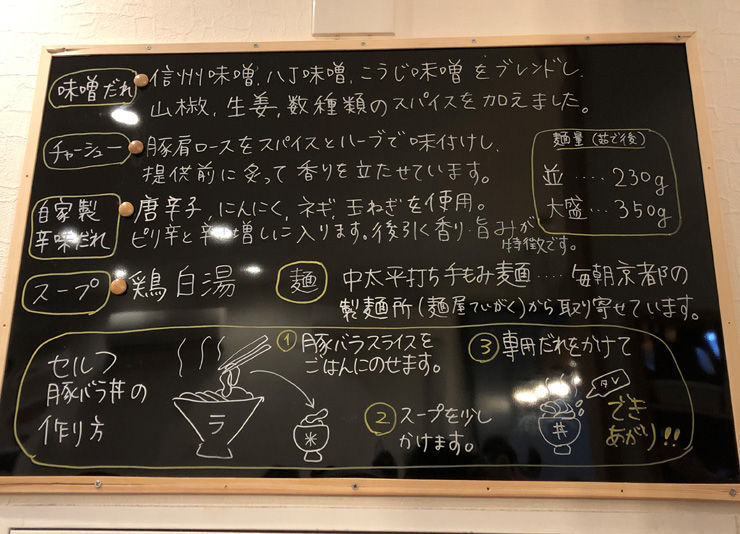 味噌だれ 信州味噌、八丁味噌、こうじ味噌をブレンドし、
山椒、生姜、数種類のスパイスを加えました。
チャーシュー 豚肩ロースをスパイスとハーブで味付けし、
提供前に炙って香りを立たせています。
麺量(茹で後)
並‥‥230g
大盛‥‥350g
自家製
辛味だれ
唐辛子、にんにく、ネギ、玉ねぎを使用。
ピリ辛と辛増しに入ります。後引く香り・旨みが
特徴です。
スープ 鶏白湯
麺 中太平打ち手もみ麺‥‥毎朝京都の
製麺所(麺屋ていがく)から取り寄せています。
セルフ
豚バラ丼の
作り方
① 豚バラスライスを
ごはんにのせます。
ラ
米
② スープを少し
かけます。
③ 専用だれをかけて
タレ
丼
でき
あがり!!